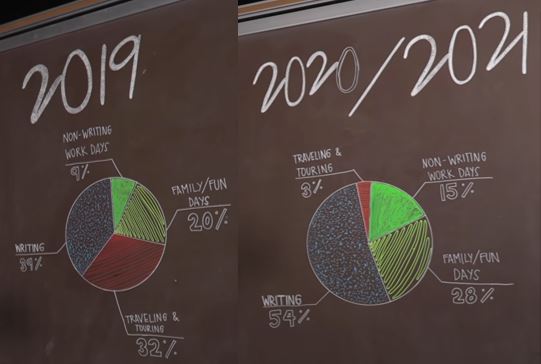 2019
NON-WRITING
WORK DAYS
9%
FAMILY/FUN
DAYS
20%
WRITING
39%
TRAVELING &
TOURING
32%
2020/2021
TRAVELING &
TOURING
3%
NON-WRITING
WORK DAYS
15%
FAMILY/FUN
DAYS
28%
WRITING
54%